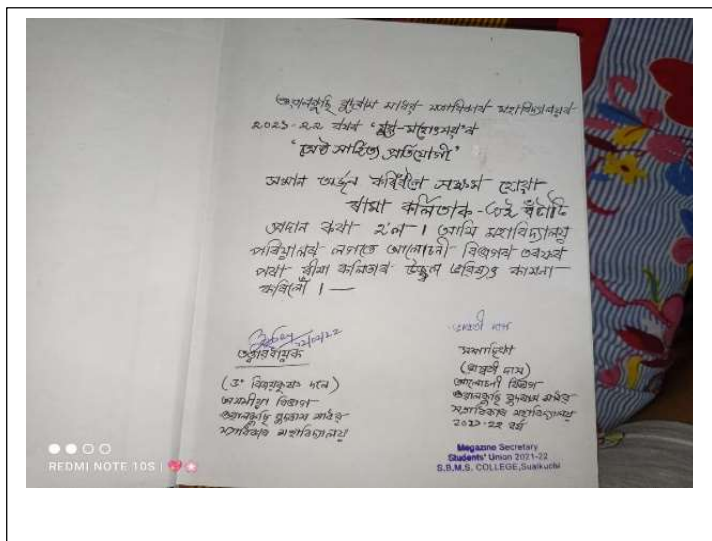 শুৱালকুছি বুদৰাম মাধৱ সত্ৰাধিকাৰ মহাবিদ্যালয়ৰ
২০২১-২২ বৰ্ষৰ 'যুৱ-মহোৎসৱ'ৰ
'শ্ৰেষ্ঠ সাহিত্য প্ৰতিযোগী'
সন্মান অৰ্জন কৰিবলৈ সক্ষম হোৱা
ৰীমা কলিতাক - এই বঁটাটি
প্ৰদান কৰা হ'ল । আমি মহাবিদ্যালয়
পৰিয়ালৰ লগতে আলোচনী বিভাগৰ তৰফৰ
পৰা ৰীমা কলিতাৰ উজ্জ্বল ভৱিষ্যৎ কামনা
কৰিলোঁ । —
তত্বাৱধায়ক
(ড°
অসমীয়া বিভাগ
শুৱালকুছি বুদৰাম মাধৱ
সত্ৰাধিকাৰ মহাবিদ্যালয়
দাস
সম্পাদিকা
দাস)
আলোচনী বিভাগ
শুৱালকুছি বুদৰাম মাধৱ
সত্ৰাধিকাৰ মহাবিদ্যালয়
২০২১-২২ বৰ্ষ
Megazine Secretary
Students' Union 2021-22
S.B.M.S. COLLEGE, Sualkuchi
REDMI NOTE 10S